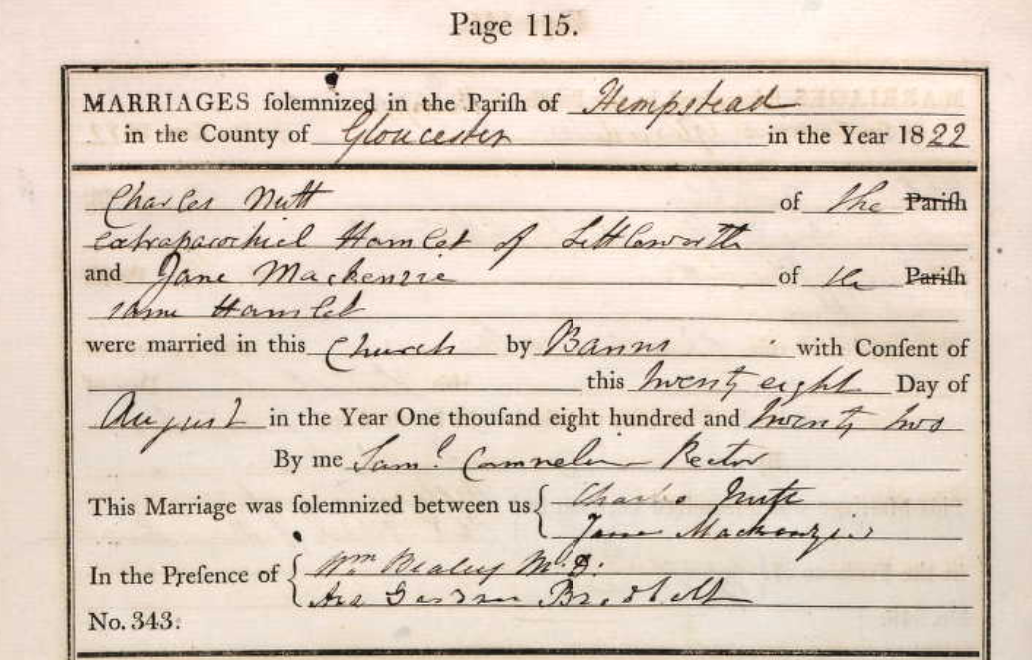 Page 115.
MARRIAGES solemnized in the Parish of Hempstead
in the County of Gloucester in the Year 1822
Charles Nutt of the Parish
extraparochial Hamlet of Littleworth
and Jane Mackenzie of the Parish
same Hamlet
were married in this Church by Banns with Consent of
this twenty eight Day of
August in the Year One thousand eight hundred and twenty two
By me Saml. Rector
This Marriage was solemnized between us Charles Nutt
Jane Mackenzie
In the Presence of Wm Bealey M.D.
No. 343.